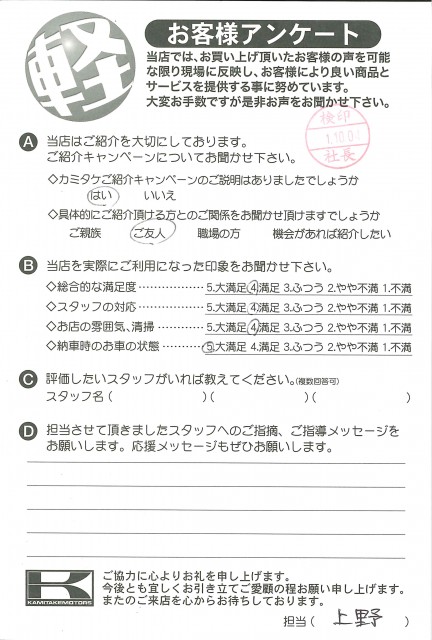 軽
お客様アンケート
当店では、お買い上げ頂いたお客様の声を可能
な限り現場に反映し、お客様により良い商品と
サービスを提供する事に努めています。
大変お手数ですが是非お声をお聞かせ下さい。
検印
1.10.04
社長
A 当店はご紹介を大切にしております。
ご紹介キャンペーンについてお聞かせ下さい。
◇カミタケご紹介キャンペーンのご説明はありましたでしょうか
はい いいえ
◇具体的にご紹介頂ける方とのご関係をお聞かせ頂けますでしょうか
ご親族 ご友人 職場の方 機会があれば紹介したい
B 当店を実際にご利用になった印象をお聞かせ下さい。
◇総合的な満足度……………5.大満足 4.満足 3.ふつう 2.やや不満 1.不満
◇スタッフの対応……………5.大満足 4.満足 3.ふつう 2.やや不満 1.不満
◇お店の雰囲気、清掃………5.大満足 4.満足 3.ふつう 2.やや不満 1.不満
◇納車時のお車の状態………5.大満足 4.満足 3.ふつう 2.やや不満 1.不満
C 評価したいスタッフがいれば教えてください。(複数回答可)
スタッフ名( )( )( )
D 担当させて頂きましたスタッフへのご指摘、ご指導メッセージを
お願いします。応援メッセージもぜひお願いします。
KAMITAKEMOTORS
ご協力に心よりお礼を申し上げます。
今後とも宜しくお引き立てご愛顧の程お願い申し上げます。
またのご来店を心からお待ちしております。
担当( 上野 )